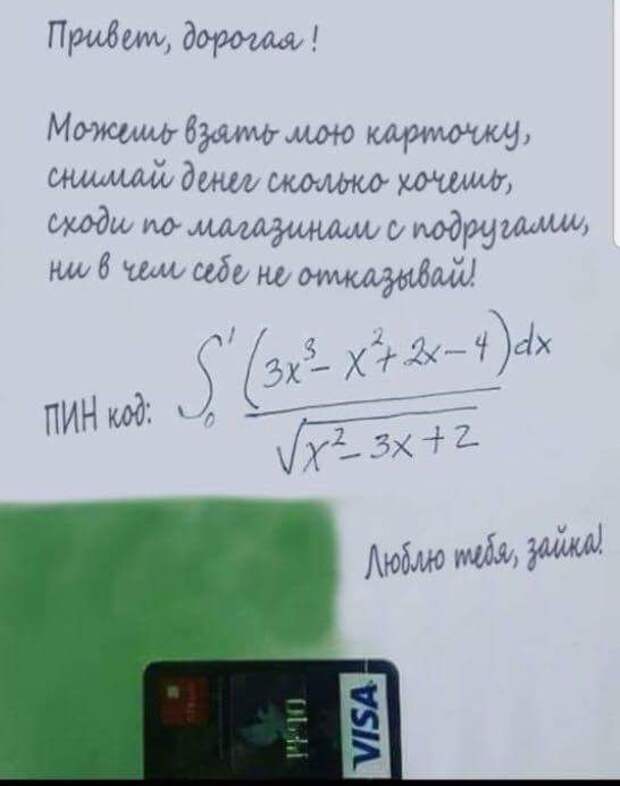 Привет, дорогая!
Можешь взять мою карточку,
снимай денег сколько хочешь,
сходи по магазинам с подругами,
ни в чем себе не отказывай!
ПИН код: ∫₀¹ (3x³ - x² + 2x - 4)dx
√x² - 3x + 2
Люблю тебя, зайка!
VISA